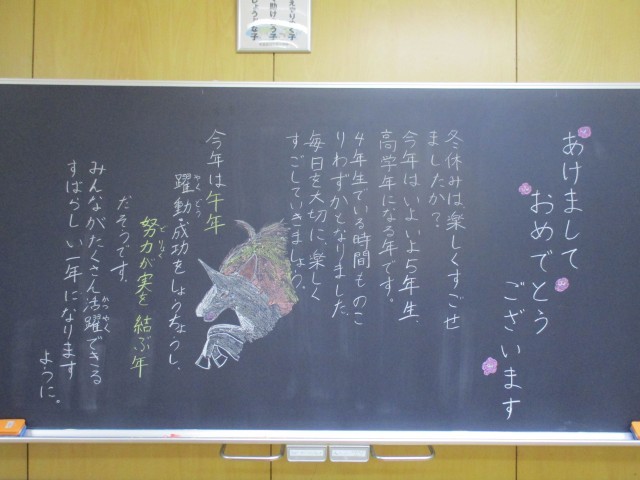 あけまして
おめでとう
ございます
冬休みは楽しくすごせ
ましたか？
今年はいよいよ5年生、
高学年になる年です。
4年生でいる時間ものこ
りわずかとなりました。
毎日を大切に、楽しく
すごしていきましょう。
今年は午年
躍動・成功をしょうちょうし、
やく どう
努力が実を結ぶ年
どりょく
だそうです。
みんながたくさん活躍できる
かつやく
すばらしい一年になります
ように。